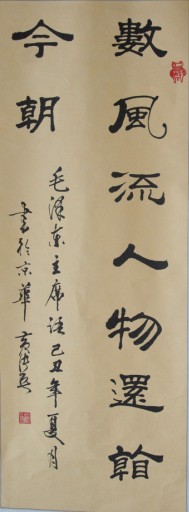 數風流人物還看
今朝
毛泽东主席 己丑年夏月
書於京華